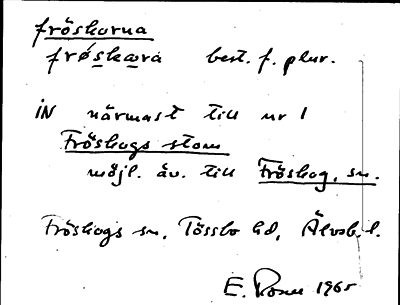 fröskorna
frøskæra best. f. plur.
IN närmast till nr 1
Fröskogs stom
möjl. äv. till Fröskog, sn.
Fröskogs sn, Tössbo hd, Älvsb. l.
E. 1965